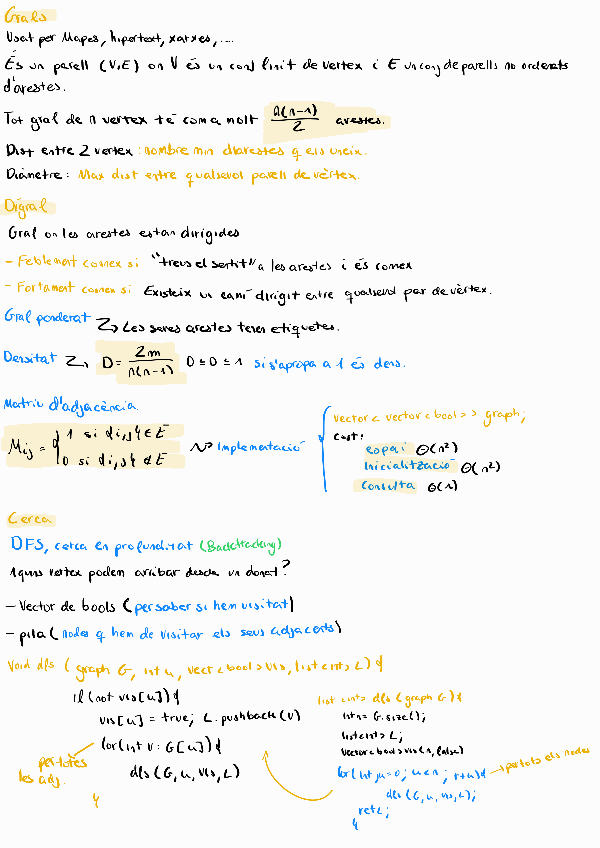 Grafs
Usat per Mapes, hipertext, xarxes, ....
És un parell (V,E) on V és un conj finit de vertex i E un conj de parells no ordenats
d'arestes.
Tot graf de n vertex té com a molt n(n-1)/2 arestes.
Dist entre 2 vertex : nombre min d'arestes q els uneix.
Diàmetre : Max dist entre qualsevol parell de vèrtex.
Digraf
Graf on les arestes estan dirigides
- Feblement connex si "treus el sentit" a les arestes i és connex
- Fortament connex si Existeix un camí dirigit entre qualsevol par de vèrtex.
Graf ponderat → Les seves arestes tenen etiquetes.
Densitat → D = 2m/n(n-1) 0 ≤ D ≤ 1 si s'apropa a 1 és dens.
Matriu d'adjacència.
Mij = { 1 si {i,j} ∈ E
0 si {i,j} ∉ E
Implementació
vector< vector<bool> > graph;
cost:
espai Θ(n²)
inicialització Θ(n²)
Consulta Θ(1)
Cerca
DFS, cerca en profunditat (Backtracking)
A quins vertex podem arribar desde un donat?
- Vector de bools (per saber si hem visitat)
- pila (nodes q hem de visitar els seus adjacents)
Void dfs (graph G, int u, vect<bool> vis, list<int> L) {
if (not vis[u]) {
vis[u] = true; L.pushback(u)
for (int v : G[u]) {
dfs (G, u, vis, L)
}
per totes
les adj.
list<int> dfs (graph G) {
int n = G.size();
list<int> L;
vector<bool> vis (n, false)
for (int u=0; u<n; ++u) { → per tots els nodes
dfs (G, u, vis, L);
ret L;
}